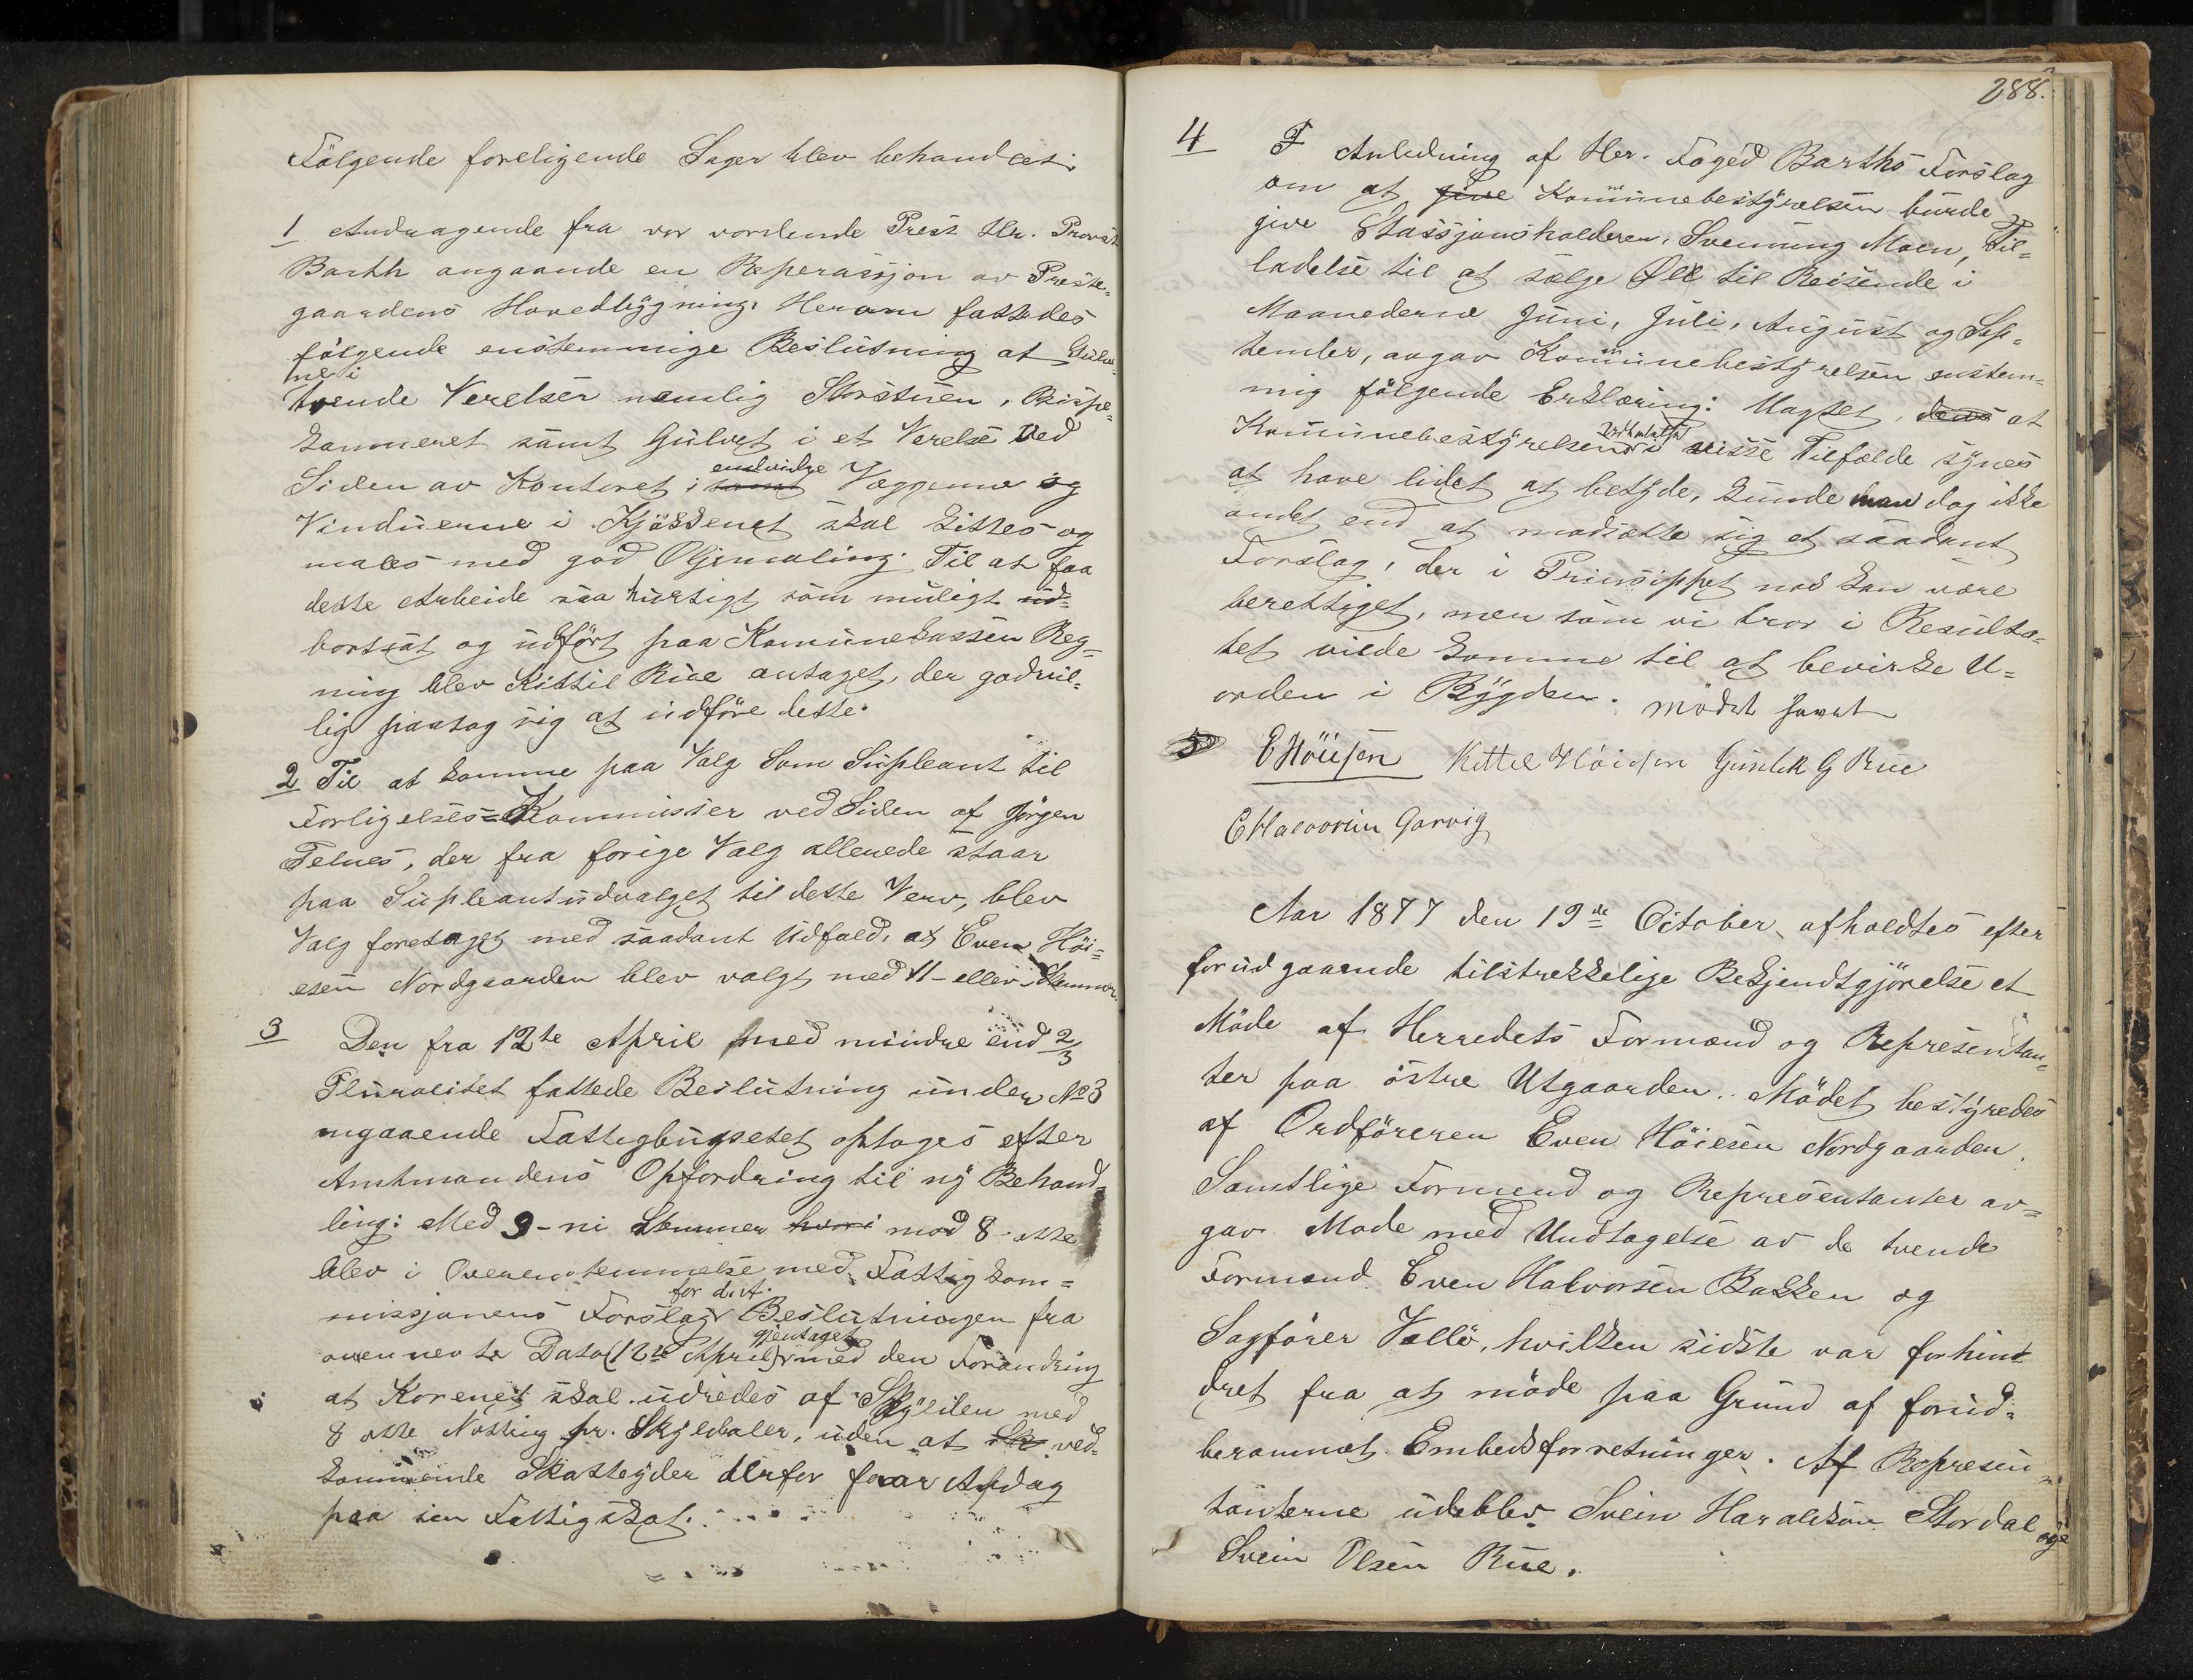 Følgende foreligende Sager blev behandlet:
1 Andragende fra vor vordende Prest Hr. Provst
Barth angaaende en Reperassjon av Preste-
gaardens Hovedbygning. Herom fattedes
følgende enstemmige Beslutning at Gulve-
ne i
tvende Verelser nemlig Storstuen, Bispe-
kammeret samt Gulvet i et Verelse ved
Siden av Kontoret; samt endvidre Væggenne og
Vinduerne i Kjøkkenet skal kittes og
males med god Oljemaling. Til at faa
dette Arbeide saa hurtigt som muligt ud-
bortsat og udført paa Komunekassen Reg-
ning blev Kittil Rue antaget, der godvil-
lig paatog sig at udføre dette.
2 Til at komme paa Valg Som Supleant til
Forligelses-Kommisier ved Siden af Jørgen
Telnes, der fra forige Valg allerede staar
paa Supleantudvalget til dette Verv, blev
Valg foretaget med saadant Udfald, at Even Høi-
esen Nordgaarden blev valgt med 11 - ellev - Stemmer.
3 Den fra 12te April med mindre end 2/3
Pluralitet fattede Beslutning under No 3
angaaende Fattigbugsetet optoges efter
Amtmandens Opfordring til ny Behand-
ling: Med 9 - ni Stemmer hvori mod 8 - otte
blev i Overenstemmelse med Fattigkom-
missjonens Forslag for d. A. Beslutningen fra
ovennevnte Dato (12te April) gjentaget med den Forandring
at Korenet skal udredes af Skylden med
8 otte Notting pr. Skyldaler, uden at Sk ved-
kommende Skatteyder derfor faar Afdag
paa sin Fattigskat.
288.
4 I Anledning af Her. Foged Barths Forslag
om at give Kommunebestyrelsen burde
give Stassjonsholderen, Svenung Moen, Til-
ladelse til at sælge Øll til Reisende i
Maanederne Juni, Juli, August og Sep-
tember, avgav Kommunebestyrelsen enstem-
mig følgende Erklæring: Uagtet, dens at
Kommunebestyrelsens Udtalelse i visse Tilfælde synes
at have lidet at betyde, kunde man dog ikke
andet end at modsætte sig et saadant
Forslag, der i Prinsippet nok kan være
berettiget, men som vi tror i Resulta-
tet vilde komme til at bevirke U-
orden i Bygden. Mødet hævet
5 EHöiesen Kittel Höidsen Gunlek G Rue
EHalvorsen Garvig
Aar 1877 den 19de October, afholdtes efter
forudgaaende tilstrekkelige Bekjendtgjørelse et
Møde af Herredets Formænd og Representan-
ter paa østre Utgaarden. Mødet bestyredes
af Ordføreren Even Høiesen Nordgaarden.
Samtlige Formend og Representanter av-
gav Møde med Undtagelse av de tvende
Formænd Even Halvorsen Bakken og
Sagfører Vallø, hvilken sidste var forhind
dret fra at møde paa Grund af forud-
berammet Embedsforretninger. Af Represen-
tanterne udeblev Svein Haraldsøn Stordal og
Svein Olsen Rue.